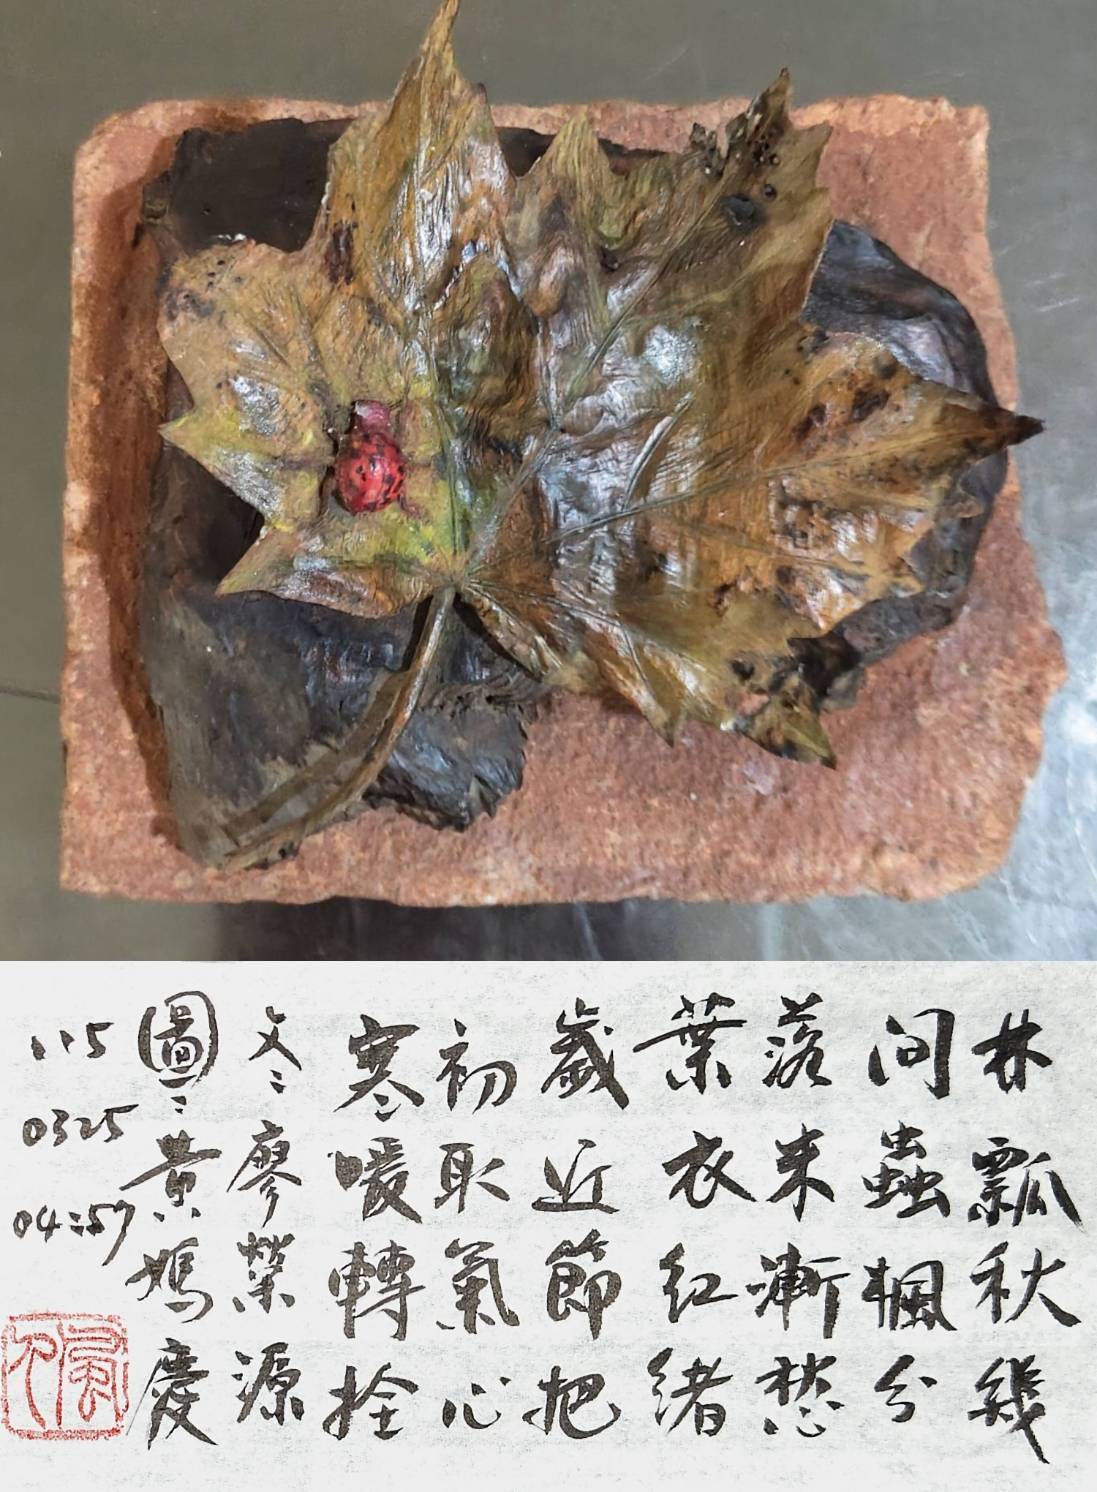 林間落葉歲初寒
瓢蟲朱衣近取暖
秋楓漸紅節氣轉
幾分愁緒把心拴
文:廖榮源
圖:黃媽慶
115
0325
04:57